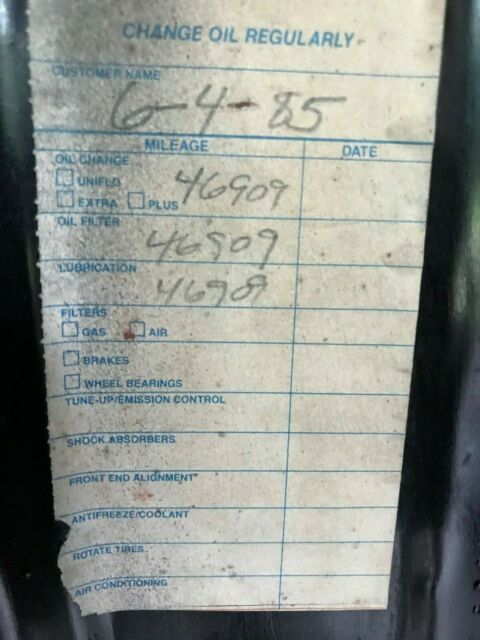 CHANGE OIL REGULARLY
CUSTOMER NAME
6-4-85
MILEAGE DATE
OIL CHANGE
UNIFLO
EXTRA PLUS 46909
OIL FILTER
46909
LUBRICATION
46909
FILTERS
GAS AIR
BRAKES
WHEEL BEARINGS
TUNE-UP/EMISSION CONTROL
SHOCK ABSORBERS
FRONT END ALIGNMENT
ANTIFREEZE/COOLANT
ROTATE TIRES
AIR CONDITIONING